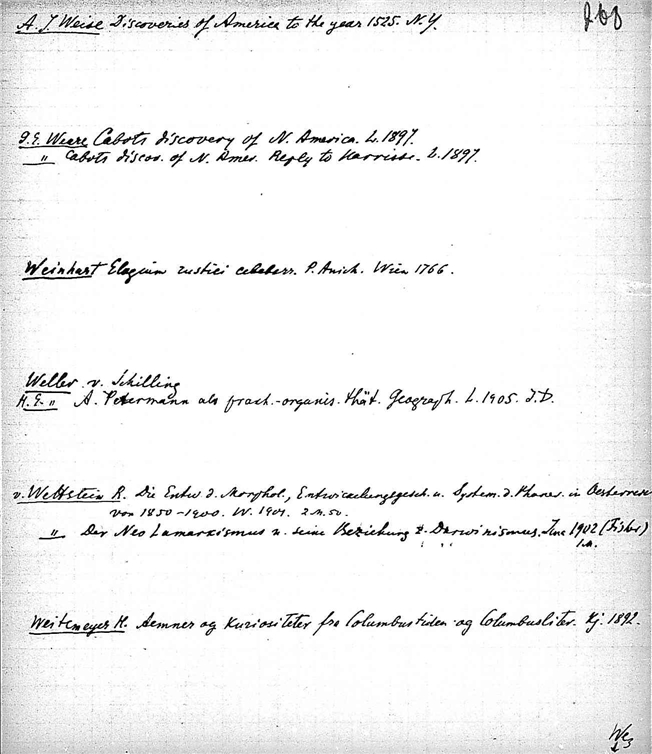 A. J. Weise Discoveries of America to the year 1525. N.Y.
G.E. Weare Cabots discovery of N. America. L. 1897.
" Cabots discov. of N. Amer. Reply to Harrisse. L. 1897.
Weinhart Elogium rustici celeberr. P. Anich. Wien 1766.
Weller v. Schilling
H.E. " A. Petermann als prakt.-organis. thät. Geograph. L. 1905. I.D.
v. Wettstein R. Die Entw. d. Morphol., Entwickelungsgesch. u. System. d. Phaner. in Oesterreich
von 1850-1900. W. 1901. 2 M. 50.
" Der Neo Lamarkismus u. seine Beziehung z. Darwinismus. Jena 1902 (Fisher)
1 M.
Weitemeyer H. Aemner og Kuriositeter fra Columbustiden og Columbusliter. Kj. 1892.